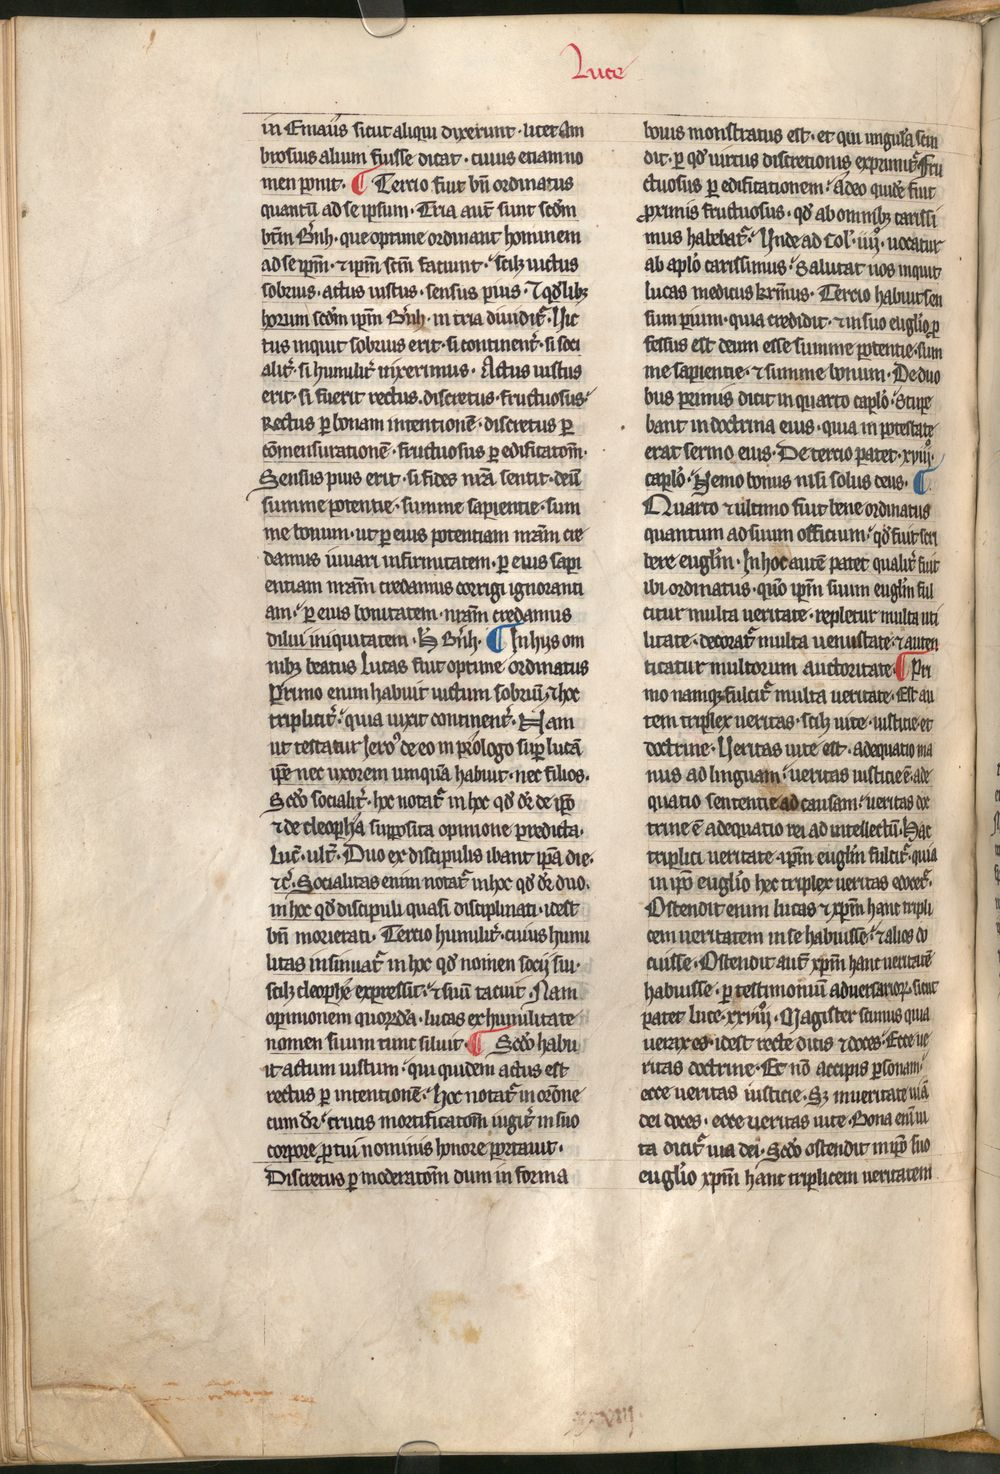 Luce
in Emaüs sicut aliqui dixerunt · licet Am
brosius alium fuisse dicat · cuius etiam no
men ponit · ¶ Tercio fuit bn̄ ordinatus
quantū ad se ipsum · Tria aut̄ sunt scd̄m
bt̄m B̄nh · que optime ordinant hominem
ad se ip̄m · ⁊ ip̄m sc̄m faciunt · scilꝫ uictus
sobrius · actus iustus · sensus pius · ⁊ qd̄libꝫ
horum scd̄m ip̄m B̄nh · in tria diuidit̄ · Uic
tus inquit sobrius erit · si continent̄ · si soci
alit̄ · si humilit̄ uixerimus · Actus iustus
erit · si fuerit rectus · discretus · fructuosus ·
Rectus ꝑ bonam intentionē · discretus ꝑ
cōmensurationē · fructuosus ꝑ edificatōm ·
Sensus pius erit · si fides nr̄a sentit · deū
summe potentie · summe sapientie · sum
me bonum · ut ꝑ eius potentiam nr̄am cre
damus iuuari infirmitatem · ꝑ eius sapi
entiam nr̄am credamus corrigi ignoranti
am · ꝑ eius bonitatem · nr̄am credamus
dilui iniquitatem · H̄ B̄nh · ¶ In hys om
nibꝫ beatus Lucas fuit optime ordinatus
Primo enim habuit uictum sobriū · ⁊ hoc
triplicit̄ · quia uixit continent̄ · Nam
ut testatur Jero⁹ de eo in prologo suꝑ lucā
ip̄e nec uxorem umquā habuit · nec filios ·
Scd̄o socialit̄ · hoc notat̄ in hoc qd̄ dr̄ de ip̄o
⁊ de cleopha supposita opinione predicta ·
Luc̄ · ult̄ · Duo ex discipulis ibant ip̄a die ·
⁊c̄ · Socialitas enim notat̄ in hoc qd̄ dr̄ duo ·
in hoc qd̄ discipuli quasi disciplinati · idest
bn̄ morierati · Tercio humilit̄ · cuius humi
litas insinuat̄ in hoc qd̄ nomen socij sui ·
scilꝫ cleophe expressit · ⁊ suū tacuit · Nam
opinionem quorūdā · lucas ex humilitate
nomen suum tunc siluit · ¶ Scd̄o habu
it actum iustum · qui quidem actus est
rectus ꝑ intentionē · hoc notat̄ in orōne
cum dr̄ · crucis mortificatōm iugit̄ in suo
corpore ꝓ tui nominis honore portauit ·
Discretus ꝑ moderatōm dum in forma
bouis monstratus est · et qui ungula scin
dit · ꝑ qd̄ uirtus discretionis exprimit̄ · Fru
ctuosus ꝑ edificationem · Adeo quidē fuit
ꝓximis fructuosus · qd̄ ab omnibꝫ carissi
mus habebat̄ · Unde ad Col̄ · iiij° · uocatur
ab apl̄o carissimus · Salutat uos inquit
lucas medicus kr̄mus · Tercio habuit sen
sum pium · quia credidit · ⁊ in suo euglīo ꝓ
fessus est deum esse summe potentie · sum
me sapientie · ⁊ summe bonum · De duo
bus primis dicit in quarto capl̄o · Stupe
bant in doctrina eius · quia in potestate
erat sermo eius · De tercio patet · xviij° ·
capl̄o · Nemo bonus nisi solus deus · ¶
Quarto ⁊ ultimo fuit bene ordinatus
quantum ad suum officium · qd̄ fuit scri
bere euglīm · In hoc autē patet qualit̄ fuit
ibi ordinatus · quō ip̄m suum euglīm ful
citur multa ueritate · repletur multa uti
litate · decorat̄ multa uenustate · ⁊ auten
ticatur multorum auctoritate · ¶ Pri
mo namqꝫ fulcit̄ multa ueritate · Est au
tem triplex ueritas · scilꝫ uite · iusticie · et
doctrine · Ueritas uite est · adequatio ma
nus ad linguam · ueritas iusticie ē · ade
quatio sententie ad causam · ueritas doc
trine ē adequatio rei ad intellectū · Hac
triplici ueritate · ip̄m euglīm fulcit̄ · quia
in ip̄o euglīo hec triplex ueritas docet̄ ·
Ostendit enim lucas ⁊ xp̄m hanc tripli
cem ueritatem in se habuisse · ⁊ alios do
cuisse · Ostendit aut̄ xp̄m hanc ueritatē
habuisse · ꝑ testimoniū aduersarioꝝ · sicut
patet luce · xxviij° · Magister scimus quia
uerax es · idest recte dicis ⁊ doces · Ecce ue
ritas doctrine · Et nō accipis ꝑsonam ·
ecce ueritas iusticie · Sꝫ in ueritate uiā
dei doces · ecce ueritas uite · Bona enī ui
ta dicit̄ uia dei · Scd̄o ostendit in ip̄o suo
euglīo xp̄m hanc triplicem ueritatem